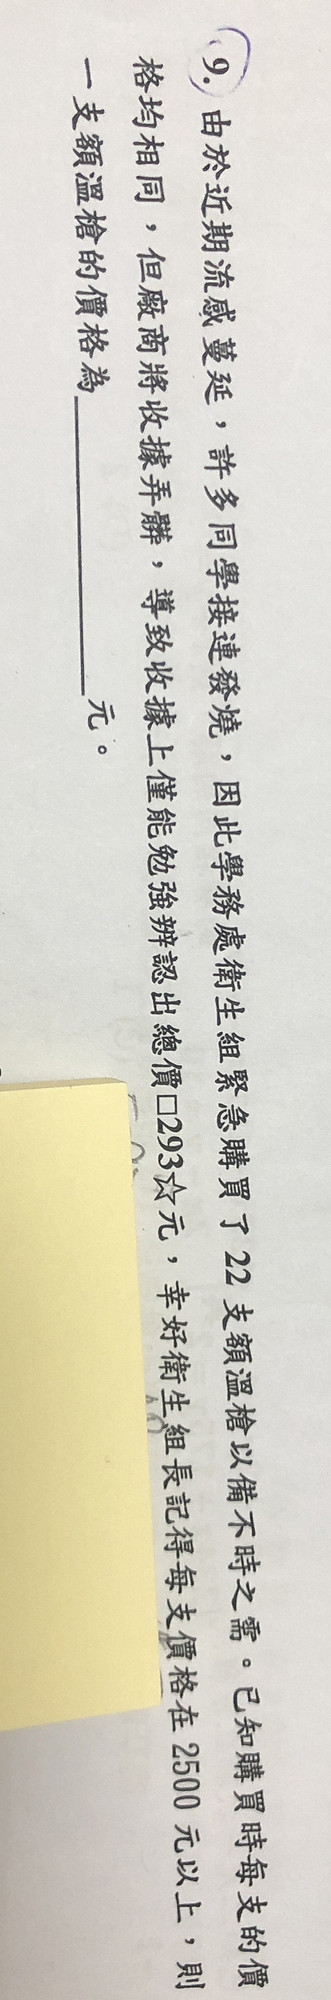 9. 由於近期流感蔓延，許多同學接連發燒，因此學務處衛生組緊急購買了 22 支額溫槍以備不時之需。已知購買時每支的價
格均相同，但廠商將收據弄髒，導致收據上僅能勉強辨認出總價□293☆元，幸好衛生組長記得每支價格在 2500 元以上，則
一支額溫槍的價格為__________元。